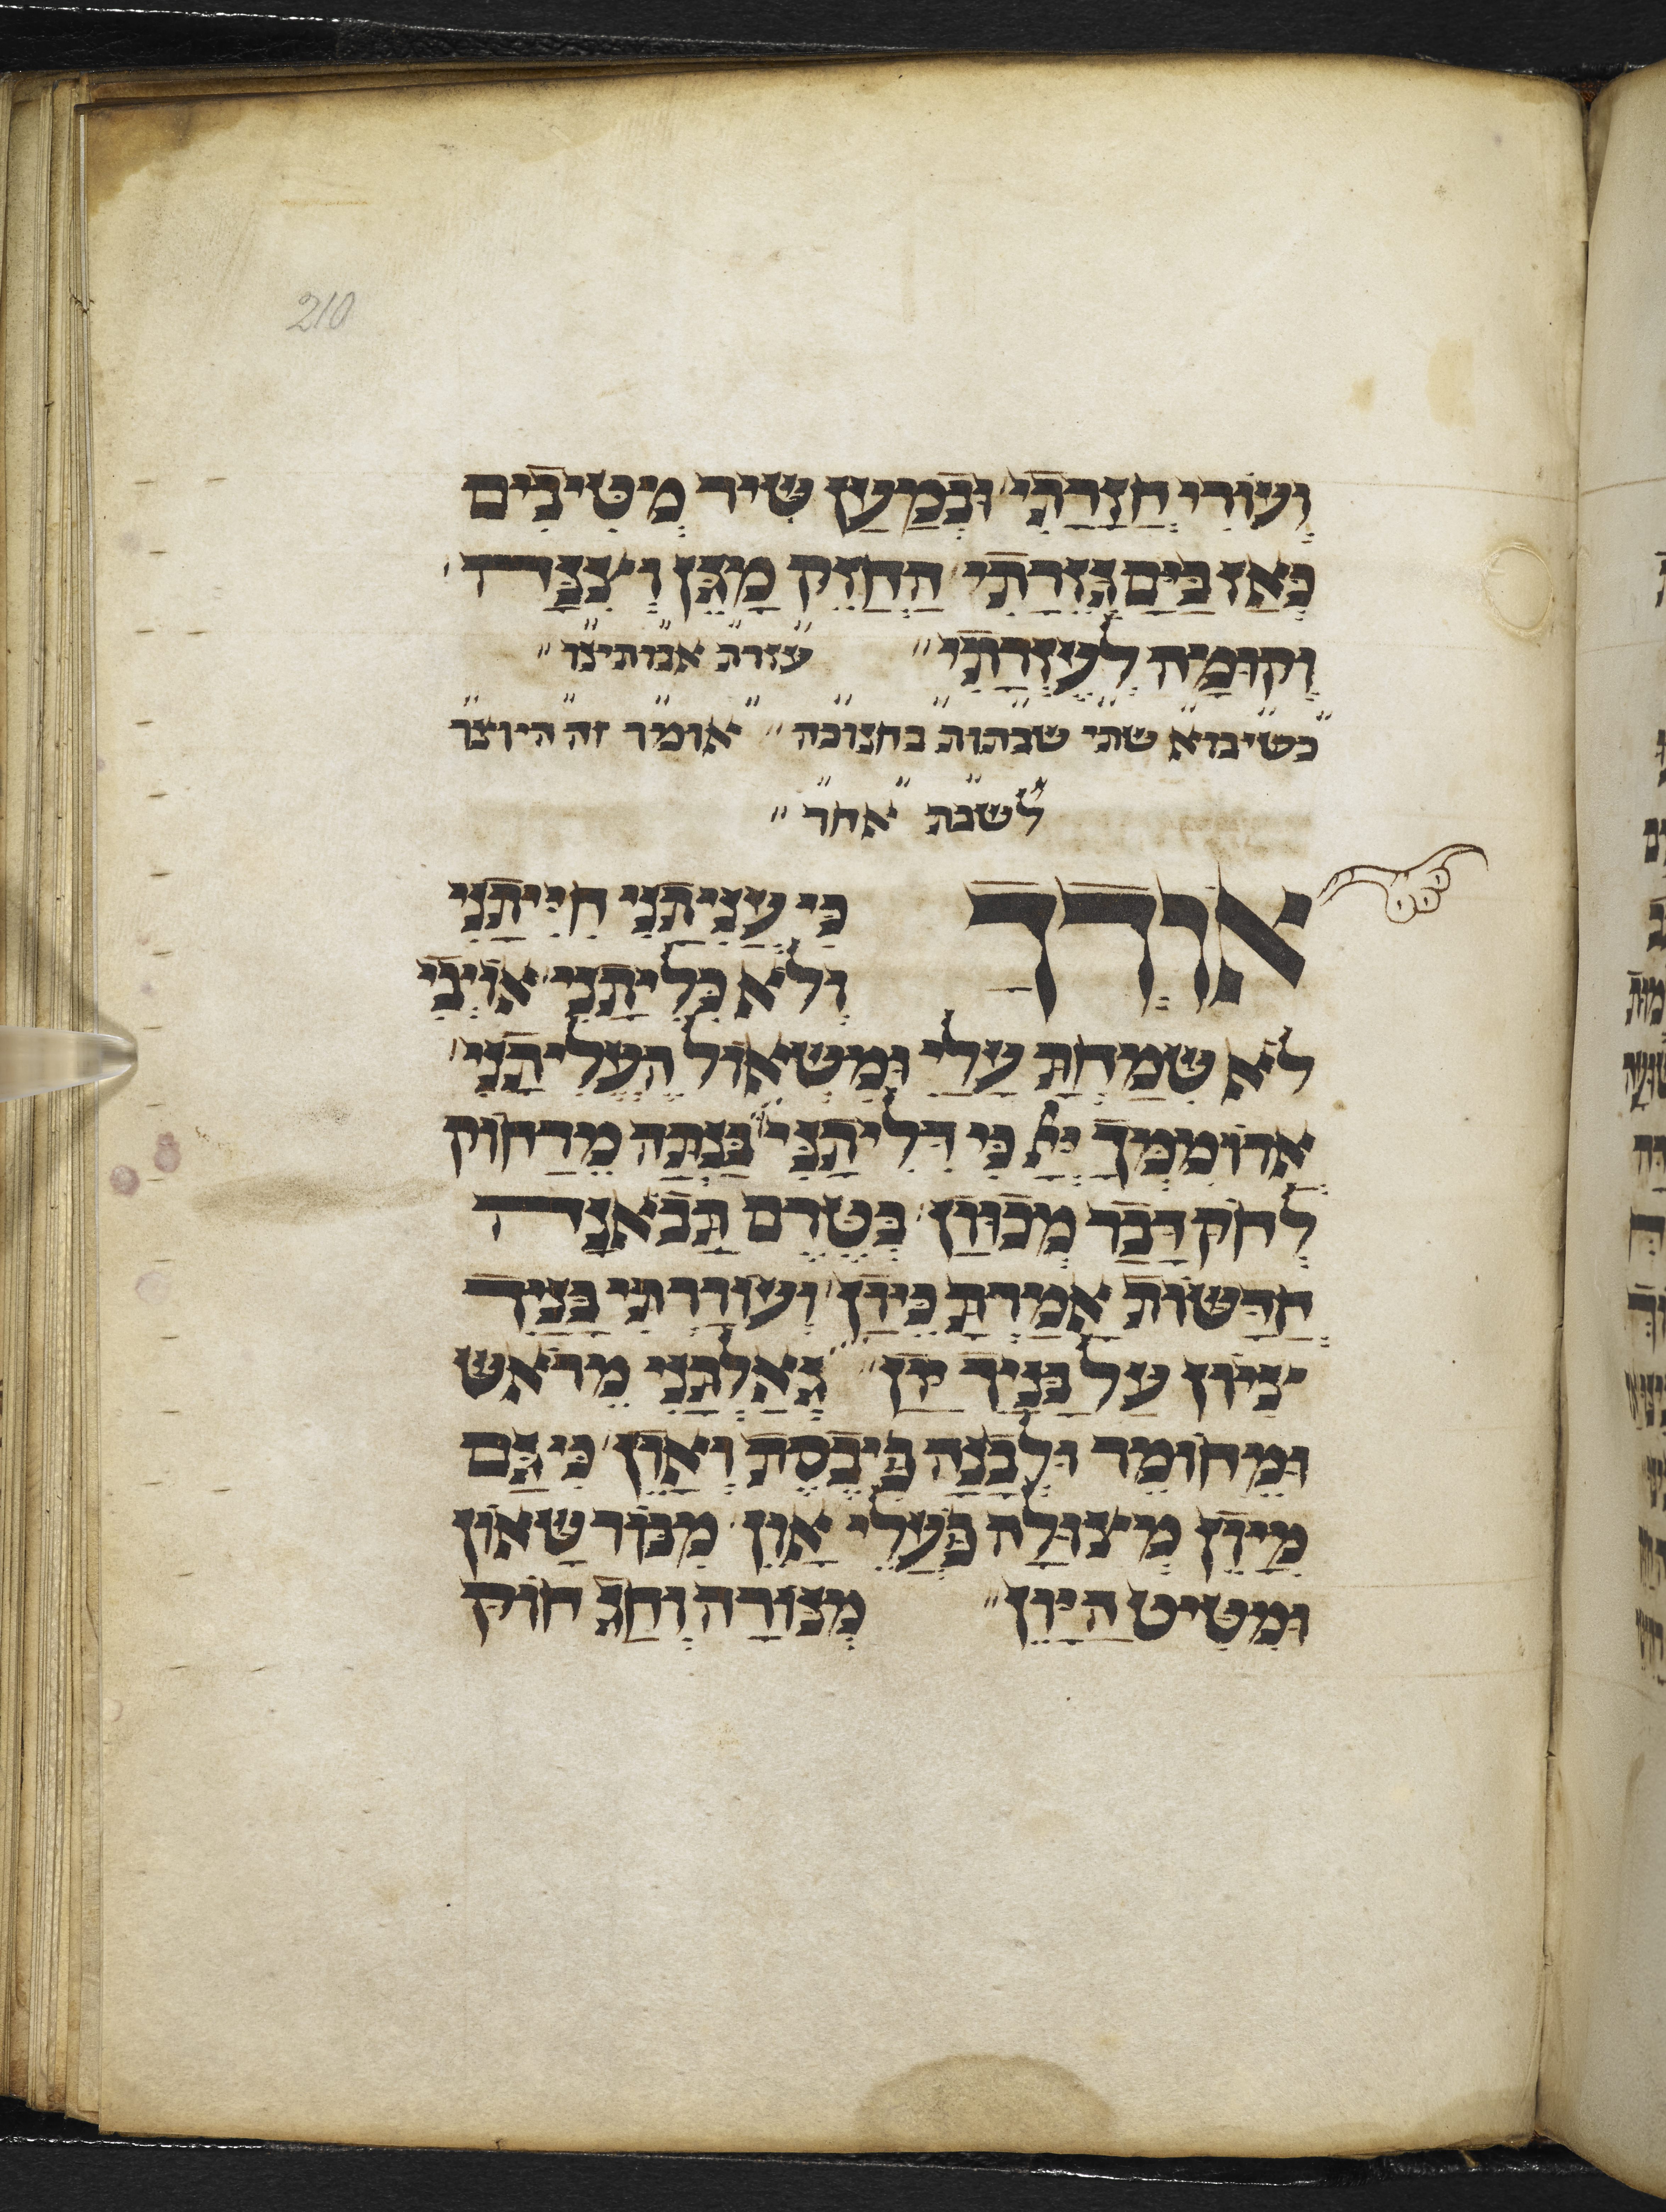 210
וְעוֹרִי חֲגֻרָתִי׳ וּבְמַעַן שִׁיר מְטִיבִים
כְּאָז בַּיָּם גְּזֵרָתִי׳ הַחֲזֵק מָגֵן וְצִנָּה׳
וְקוּמָה לְעֶזְרָתִי׳׳ עזרת אבותינו׳׳
כשיבוא שתי שבתות בחנוכה׳׳ אומר זה היוצר
לשבת אחר׳׳
אוֹדְךָ כִּי עֲנִיתָנִי חִיִּיתָנִי
וְלֹא כִלִּיתָנִי׳ אוֹיְבִי
לֹא שִׂמַּחְתָּ עָלַי וּמִשְּׁאוֹל הֶעֱלִיתָנִי׳
ארוֹמִמְךָ יְיָ כִּי דִלִּיתָנִי׳׳ בַּנְתָּה מֵרָחוֹק
לְחוֹק דָּבָר מְכוּוָּן׳ בְּטֶרֶם תָּבֹאנָה
חֲדָשׁוֹת אָמַרְתָּ כִּיוָן׳ וְעוֹרַרְתִּי בָנַיִךְ
צִיּוֹן עַל בָּנַיִךְ יָוָן׳׳ גְּאַלְתָּנִי מֵרֹאשׁ
וּמֵחוֹמֶר וּלְבֵנָה
מִיָּוֵן מְצוּלָה בַּעֲלֵי אָוֶן׳ מִבּוֹר שָׁאוֹן
וּמִטִּיט הַיָּוֵן׳׳ חוֹק